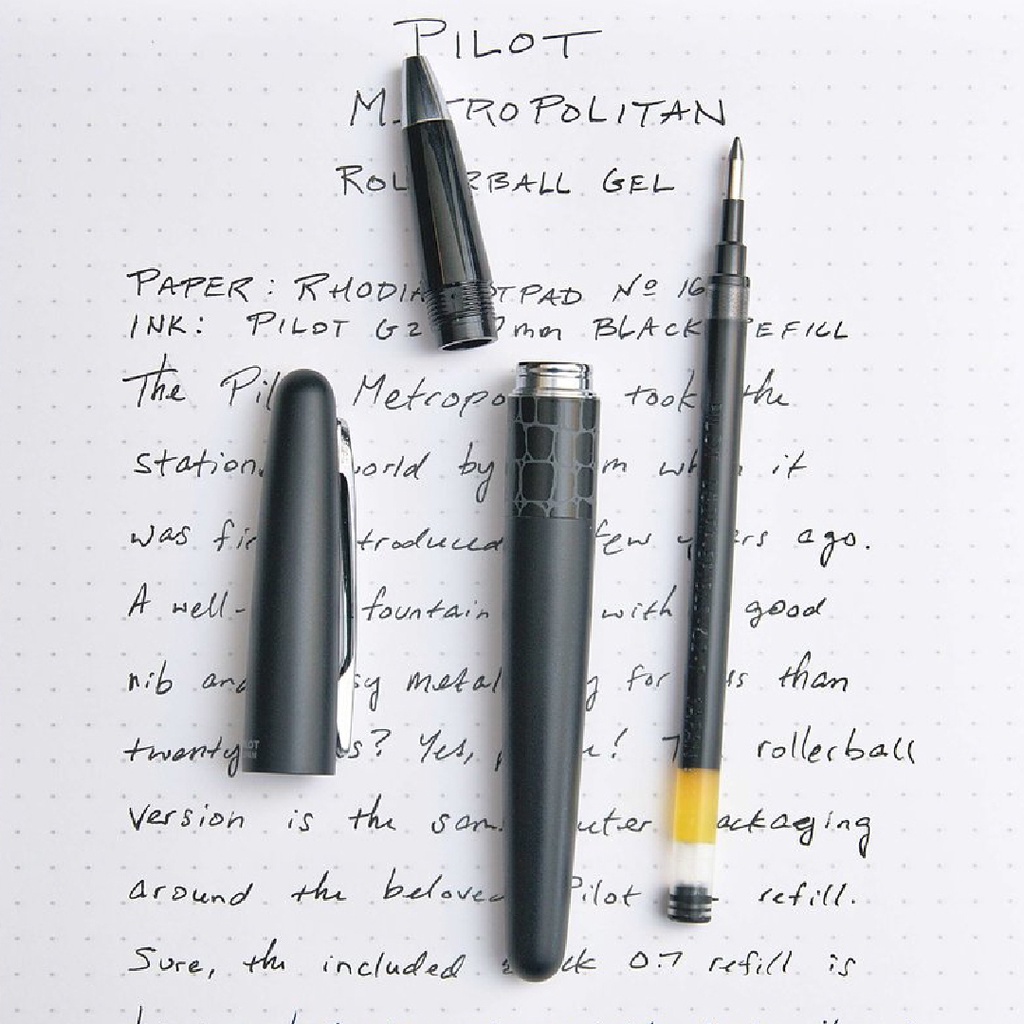 PILOT
M TROPOLITAN
ROL RBALL GEL
PAPER: RHODIA TPAD Nº 16
INK: PILOT G2 7mm BLACK REFILL
The Pil Metropo took the
station world by m wh it
was fir troduced few y rs ago.
A well- fountain with good
nib and sy metal for ss than
twenty s? Yes, ! T rollerball
version is the sam outer ackaging
around the beloved Pilot refill.
Sure, the included ck 0.7 refill is